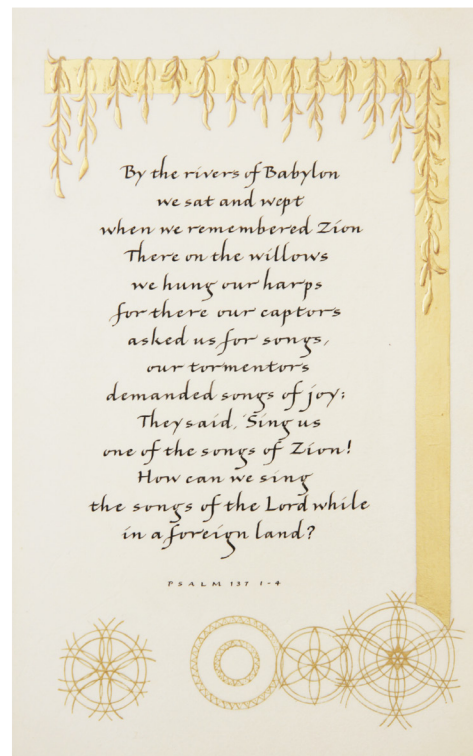 By the rivers of Babylon
we sat and wept
when we remembered Zion
There on the willows
we hung our harps
for there our captors
asked us for songs,
our tormentors
demanded songs of joy;
They said, 'Sing us
one of the songs of Zion!
How can we sing
the songs of the Lord while
in a foreign land?
PSALM 137 1-4